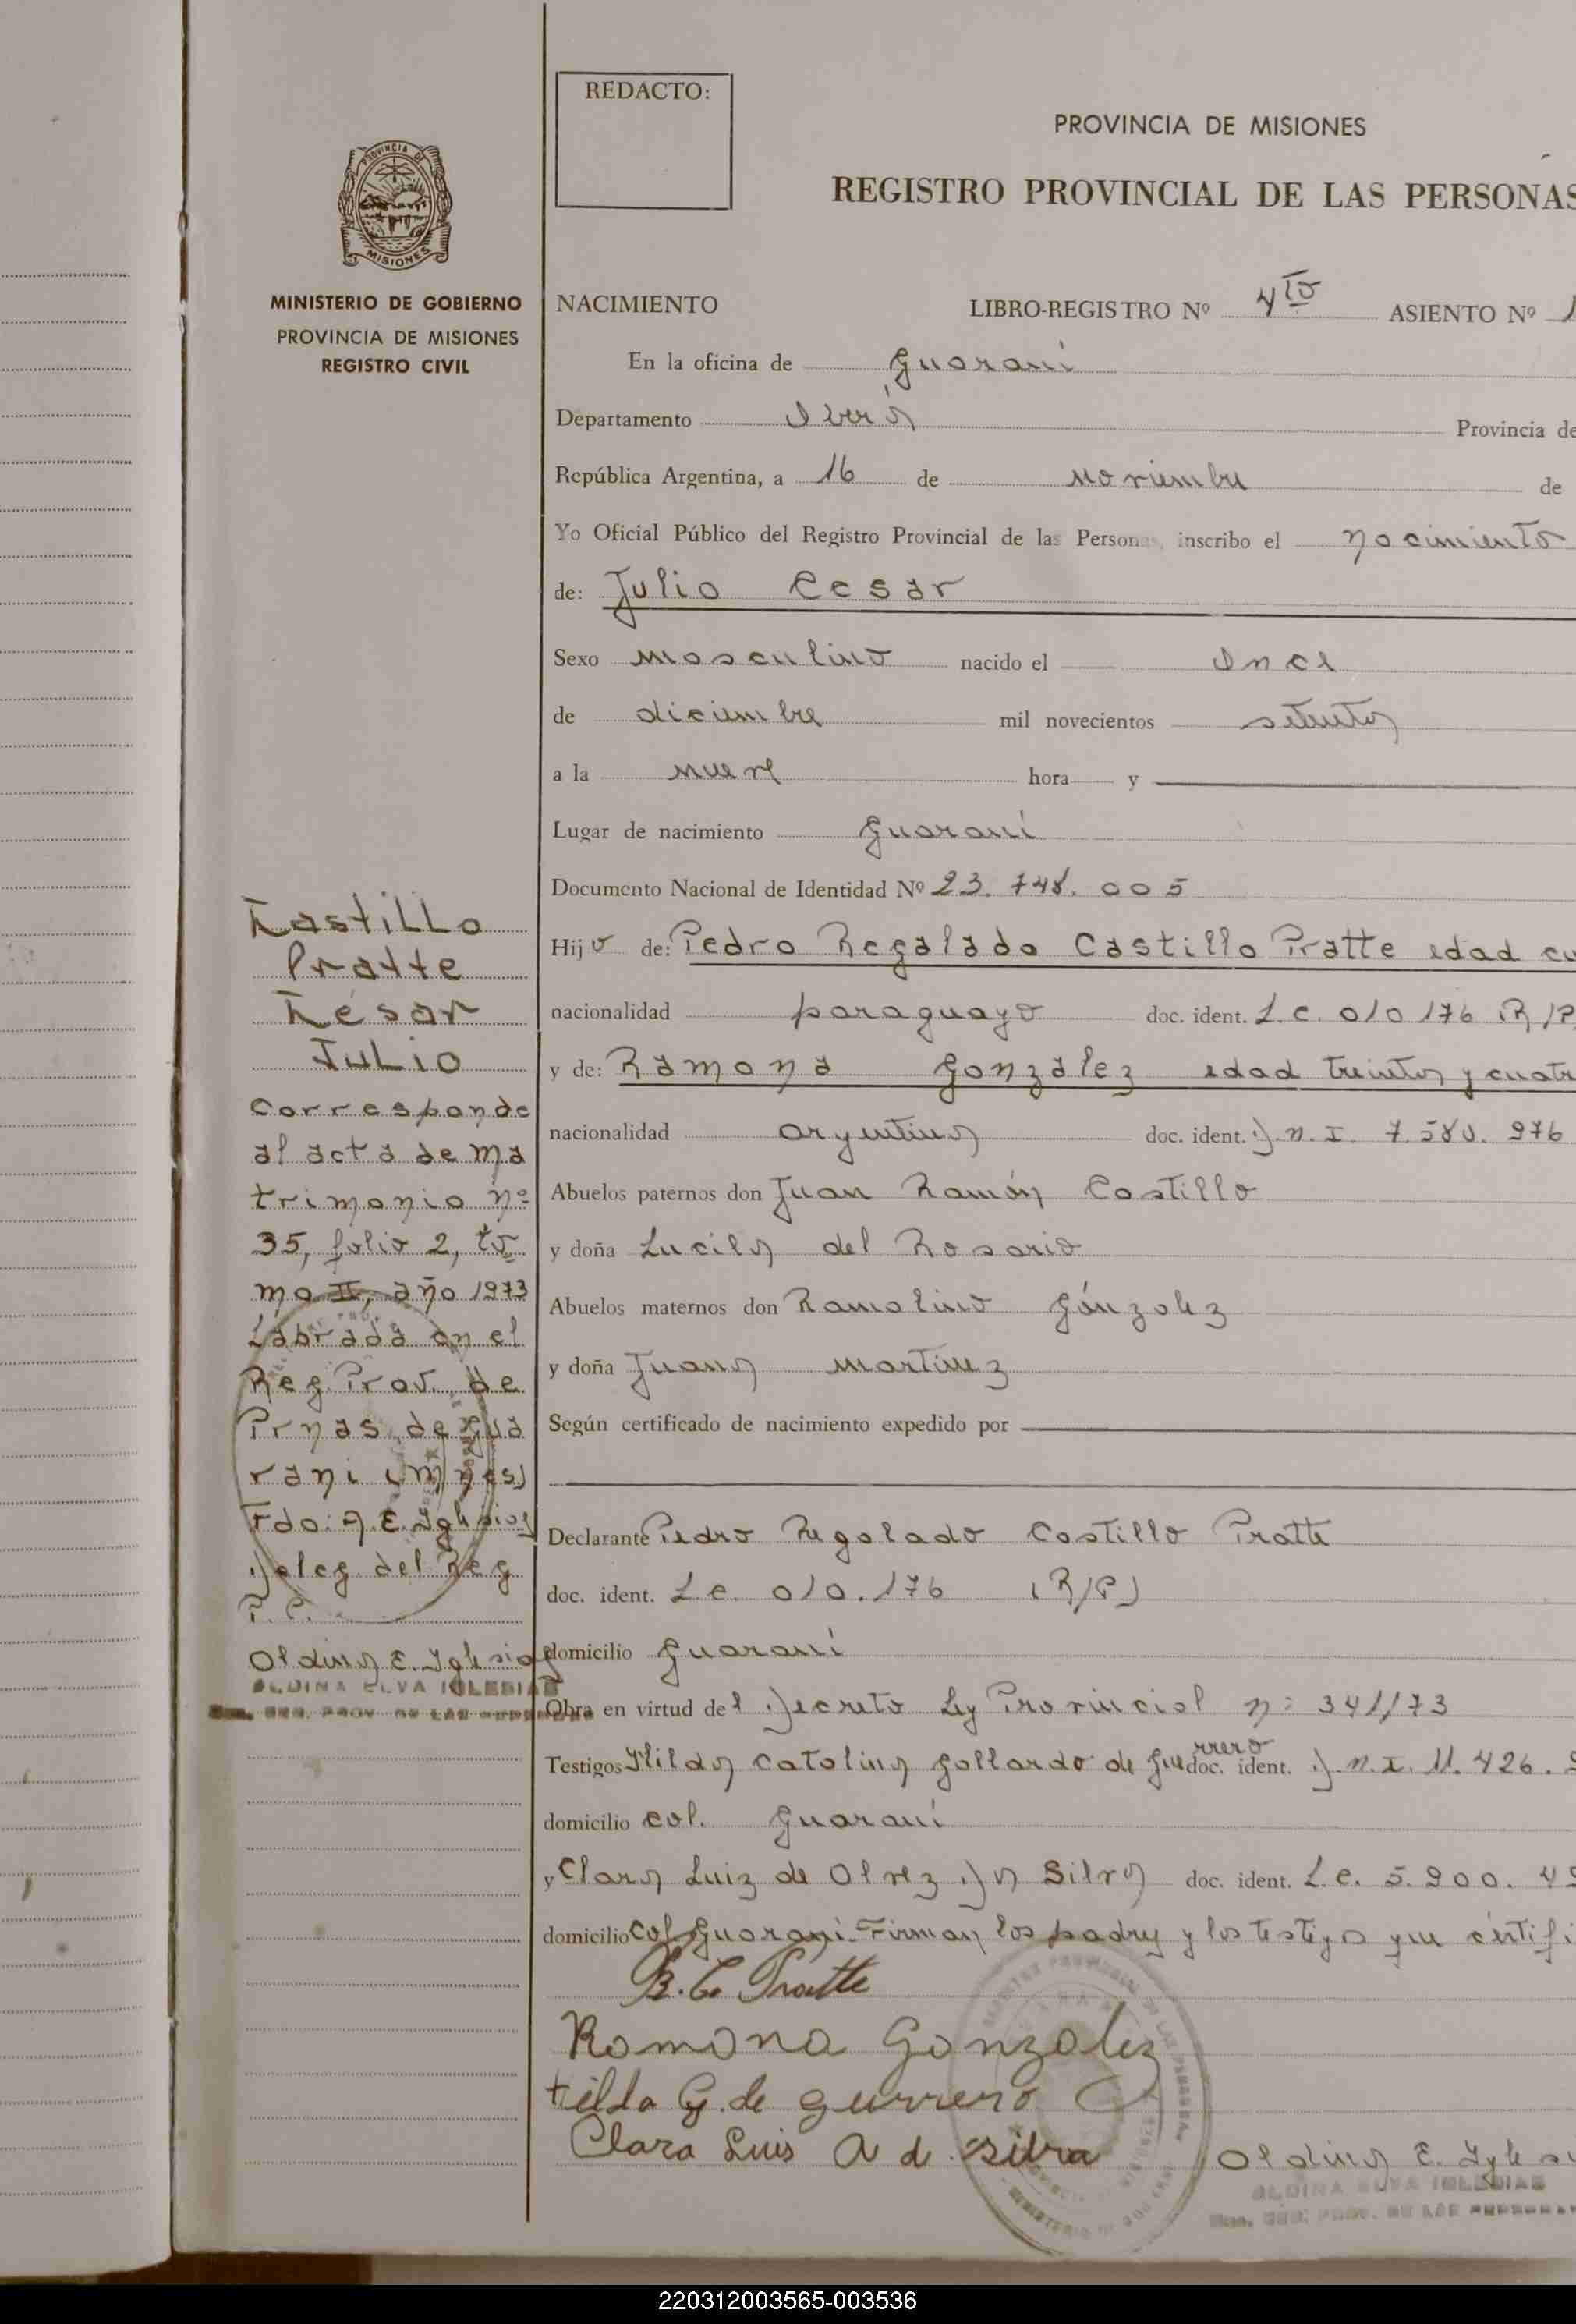 REDACTO:
PROVINCIA DE MISIONES
REGISTRO PROVINCIAL DE LAS PERSONAS
PROVINCIA DE
MISIONES
MINISTERIO DE GOBIERNO
PROVINCIA DE MISIONES
REGISTRO CIVIL
NACIMIENTO LIBRO-REGISTRO Nº 4to ASIENTO Nº 1
En la oficina de Guaraní
Departamento Oberá Provincia de
República Argentina, a 16 de noviembre de
Yo Oficial Público del Registro Provincial de las Personas, inscribo el nacimiento
de: Julio Cesar
Sexo masculino nacido el once
de diciembre mil novecientos setenta
a la nueve hora y
Lugar de nacimiento Guaraní
Documento Nacional de Identidad Nº 23.748.005
Hijo de: Pedro Regalado Castillo Pratte edad cu
nacionalidad paraguaya doc. ident. L.C. 010176 (R/P)
y de: Ramona Gonzalez edad treinta y cuatr
nacionalidad argentina doc. ident. D.N.I. 7.580.976
Abuelos paternos don Juan Ramón Castillo
y doña Lucila del Rosario
Abuelos maternos don Ramolino Gónzalez
y doña Juana Martinez
Según certificado de nacimiento expedido por
Declarante Pedro Regalado Castillo Pratte
doc. ident. L.C. 010.176 (R/P)
domicilio Guaraní
Obra en virtud del Decreto Ley Provincial nº 341/73
Testigos Ilda Catalina Gallardo de Guerrero doc. ident. D.N.I. 11.426.
domicilio col. Guaraní
y Clara Luiz de Alvez Da Silva doc. ident. L.C. 5.900.
domicilio Col. Guaraní. Firman los padres y los testigos que certifi
R. C. Pratte
Ramona Gonzalez
tilda G. de gurrero
Clara Luis A d. silva
Aldina E. Iglesi
ALDINA ELVA IGLESIAS
REG. PROV. DE LAS PERSONAS
Kastillo
Pratte
Késar
Julio
Corresponde
al acta de ma
trimonio nº
35, folio 2, to
mo II, año 1973
Labrada en el
Reg. Prov. de
Prnas de Gua
raní (Mnes)
Fdo: A.E. Iglesias
Deleg. del Reg
P. P.
Aldina E. Iglesias
ALDINA ELVA IGLESIAS
REG. PROV. DE LAS PERSONAS
220312003565-003536